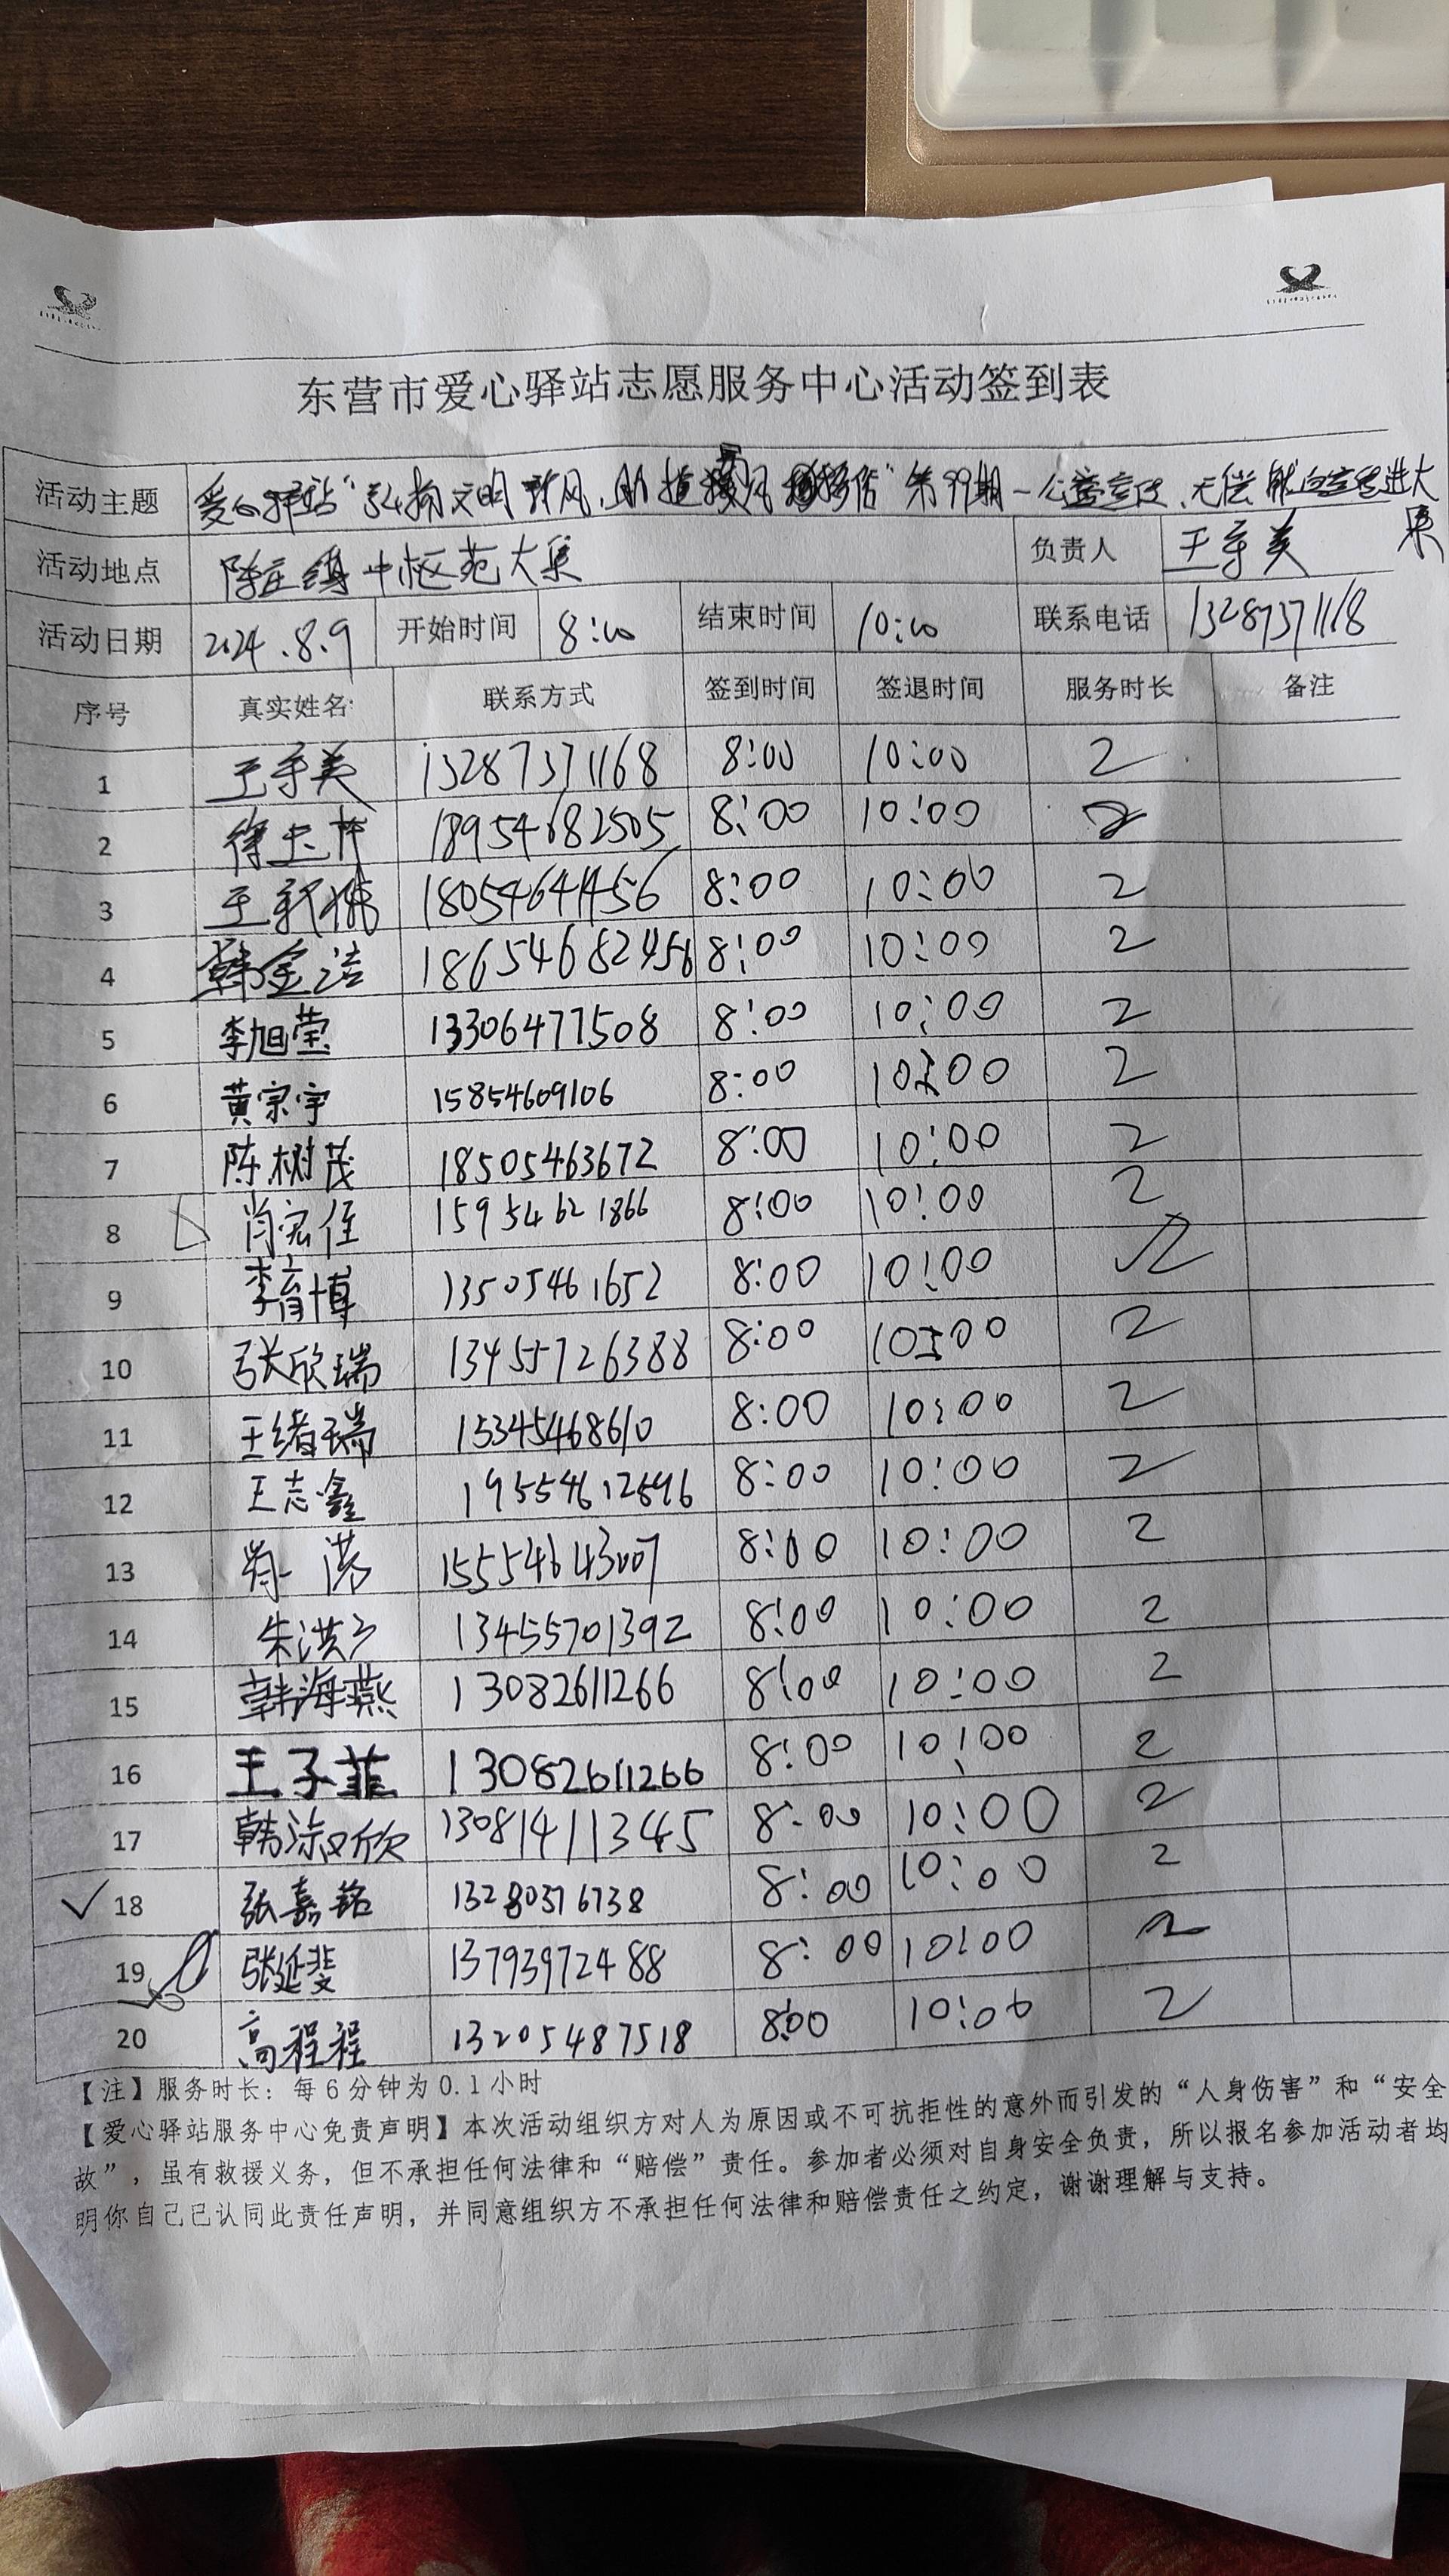 东营市爱心驿站志愿服务中心活动签到表
活动主题 爱心驿站"弘扬文明新风,助推移风易俗"第99期—公益宣传、无偿献血宣传进大集
活动地点 陈庄镇中枢苑大集 负责人
活动日期 2024.8.9 开始时间 8:00 结束时间 10:00 联系电话 13287371168
序号 真实姓名 联系方式 签到时间 签退时间 服务时长 备注
1 13287371168 8:00 10:00 2
2 18954682505 8:00 10:00 2
3 18054641456 8:00 10:00 2
4 韩金洁 18654682456 8:00 10:00 2
5 李旭莹 13306477508 8:00 10:00 2
6 黄宗宇 15854609106 8:00 10:00 2
7 陈树茂 18505463672 8:00 10:00 2
8 肖宏任 15954621866 8:00 10:00 2
9 李育博 13505461652 8:00 10:00 2
10 张欣瑞 13455726388 8:00 10:00 2
11 王绪瑞 15345468610 8:00 10:00 2
12 王志鑫 8:00 10:00 2
13 15554643007 8:00 10:00 2
14 朱洪 13455701392 8:00 10:00 2
15 韩海燕 13082611266 8:00 10:00 2
16 王子菲 13082611266 8:00 10:00 2
17 韩 欣 13081411345 8:00 10:00 2
18 张嘉铭 13280376738 8:00 10:00 2
19 张延斐 13793972488 8:00 10:00 2
20 高程程 13205487518 8:00 10:00 2
【注】服务时长:每6分钟为0.1小时
【爱心驿站服务中心免责声明】本次活动组织方对人为原因或不可抗拒性的意外而引发的“人身伤害”和“安全
故”,虽有救援义务,但不承担任何法律和“赔偿”责任。参加者必须对自身安全负责,所以报名参加活动者均
明你自己已认同此责任声明,并同意组织方不承担任何法律和赔偿责任之约定,谢谢理解与支持。